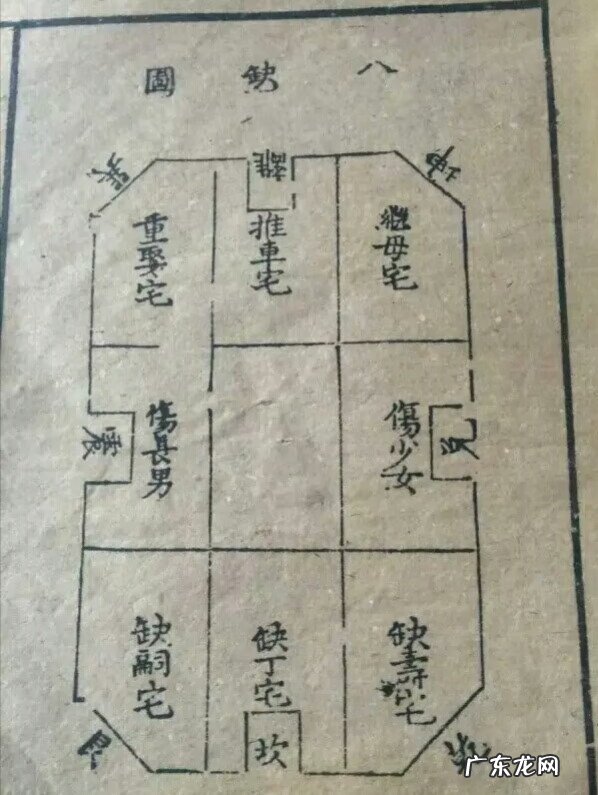 八缺圖
坤
離
巽
繼母宅
推車宅
重娶宅
兌
傷少女
傷長男
震
缺壽宅
缺丁宅
缺嗣宅
坎
艮
广东龙网